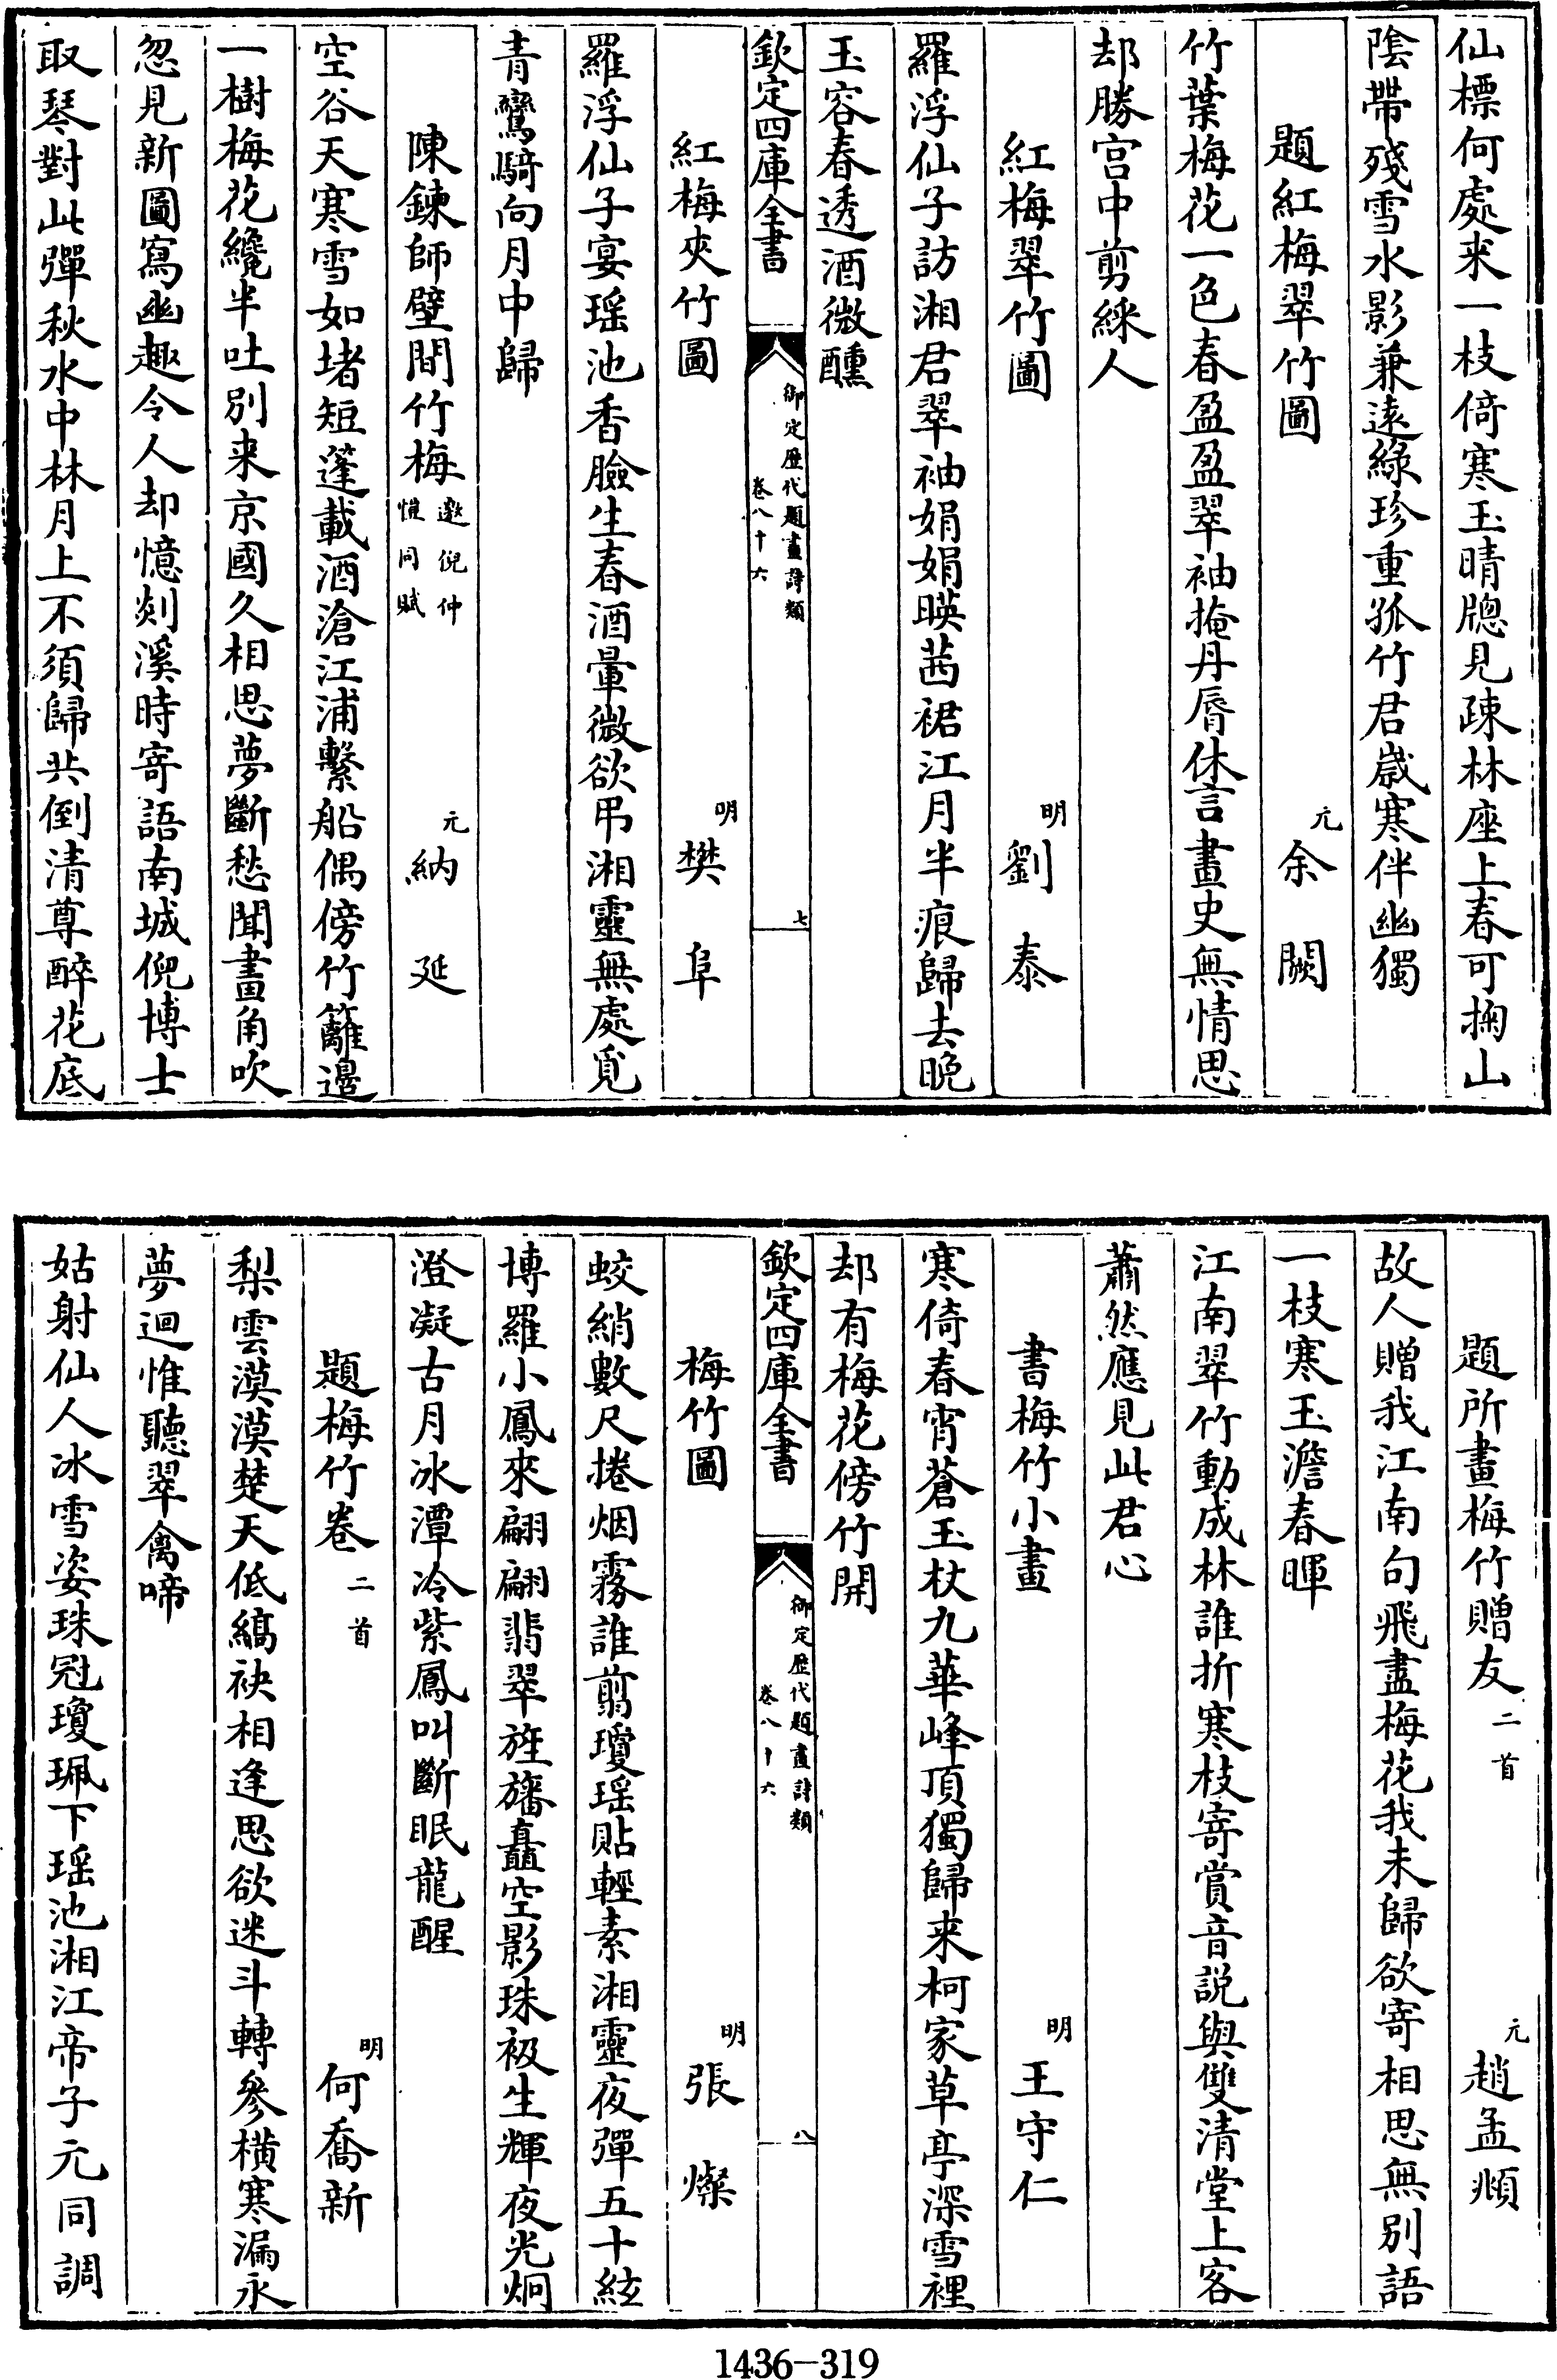 仙標何處来一枝倚寒玉晴牕見疎林座上春可掬山
陰帶殘雪水影兼遠綠珍重孤竹君歲寒伴幽獨
題紅梅翠竹圖 元 余闕
竹葉梅花一色春盈盈翠袖掩丹脣休言畫史無情思
却勝宫中剪綵人
紅梅翠竹圖 明 劉泰
羅浮仙子訪湘君翠袖娟娟暎茜裙江月半痕歸去晩
玉容春透酒微醺
欽定四庫全書 御定歴代題畫詩類 卷八十六 七
紅梅夾竹圖 明 樊阜
羅浮仙子宴瑶池香臉生春酒暈微欲弔湘靈無處覓
青鸞騎向月中歸
陳鍊師壁間竹梅 邀倪仲愷同賦 元 納延
空谷天寒雪如堵短蓬載酒滄江浦繫船偶傍竹籬邊
一樹梅花纔半吐別来京國久相思夢斷愁聞畫角吹
忽見新圖寫幽趣令人却憶剡溪時寄語南城倪博士
取琴對此彈秋水中林月上不須歸共倒清尊醉花底
題所畫梅竹贈友 二首 元 趙孟頫
故人贈我江南句飛盡梅花我未歸欲寄相思無別語
一枝寒玉澹春暉
江南翠竹動成林誰折寒枝寄賞音説與雙清堂上客
蕭然應見此君心
書梅竹小畫 明 王守仁
寒倚春宵蒼玉杖九華峰頂獨歸来柯家草亭深雪裡
却有梅花傍竹開
欽定四庫全書 御定歴代題畫詩類 卷八十六 八
梅竹圖 明 張燦
蛟綃數尺捲烟霧誰剪瓊瑶貼輕素湘靈夜彈五十絃
博羅小鳳來翩翩翡翠旌旛矗空影珠衱生輝夜光炯
澄凝古月冰潭冷紫鳳叫斷眠龍醒
題梅竹卷 二首 明 何喬新
梨雲漠漠楚天低縞袂相逢思欲迷斗轉參橫寒漏永
夢迴惟聽翠禽啼
姑射仙人冰雪姿珠冠瓊珮下瑶池湘江帝子元同調
1436-319